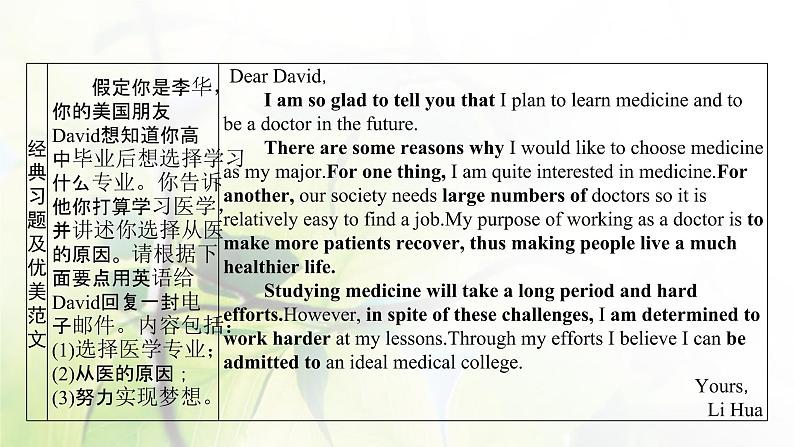 经典习题及优美范文
假定你是李华，
你的美国朋友
David想知道你高
中毕业后想选择学习
什么专业。你告诉
他你打算学习医学，
并讲述你选择从医
的原因。请根据下
面要点用英语给
David回复一封电
子邮件。内容包括：
(1)选择医学专业；
(2)从医的原因；
(3)努力实现梦想。
Dear David,
I am so glad to tell you that I plan to learn medicine and to
be a doctor in the future.
There are some reasons why I would like to choose medicine
as my major.For one thing, I am quite interested in medicine.For
another, our society needs large numbers of doctors so it is
relatively easy to find a job.My purpose of working as a doctor is to
make more patients recover, thus making people live a much
healthier life.
Studying medicine will take a long period and hard
efforts.However, in spite of these challenges, I am determined to
work harder at my lessons.Through my efforts I believe I can be
admitted to an ideal medical college.
Yours,
Li Hua